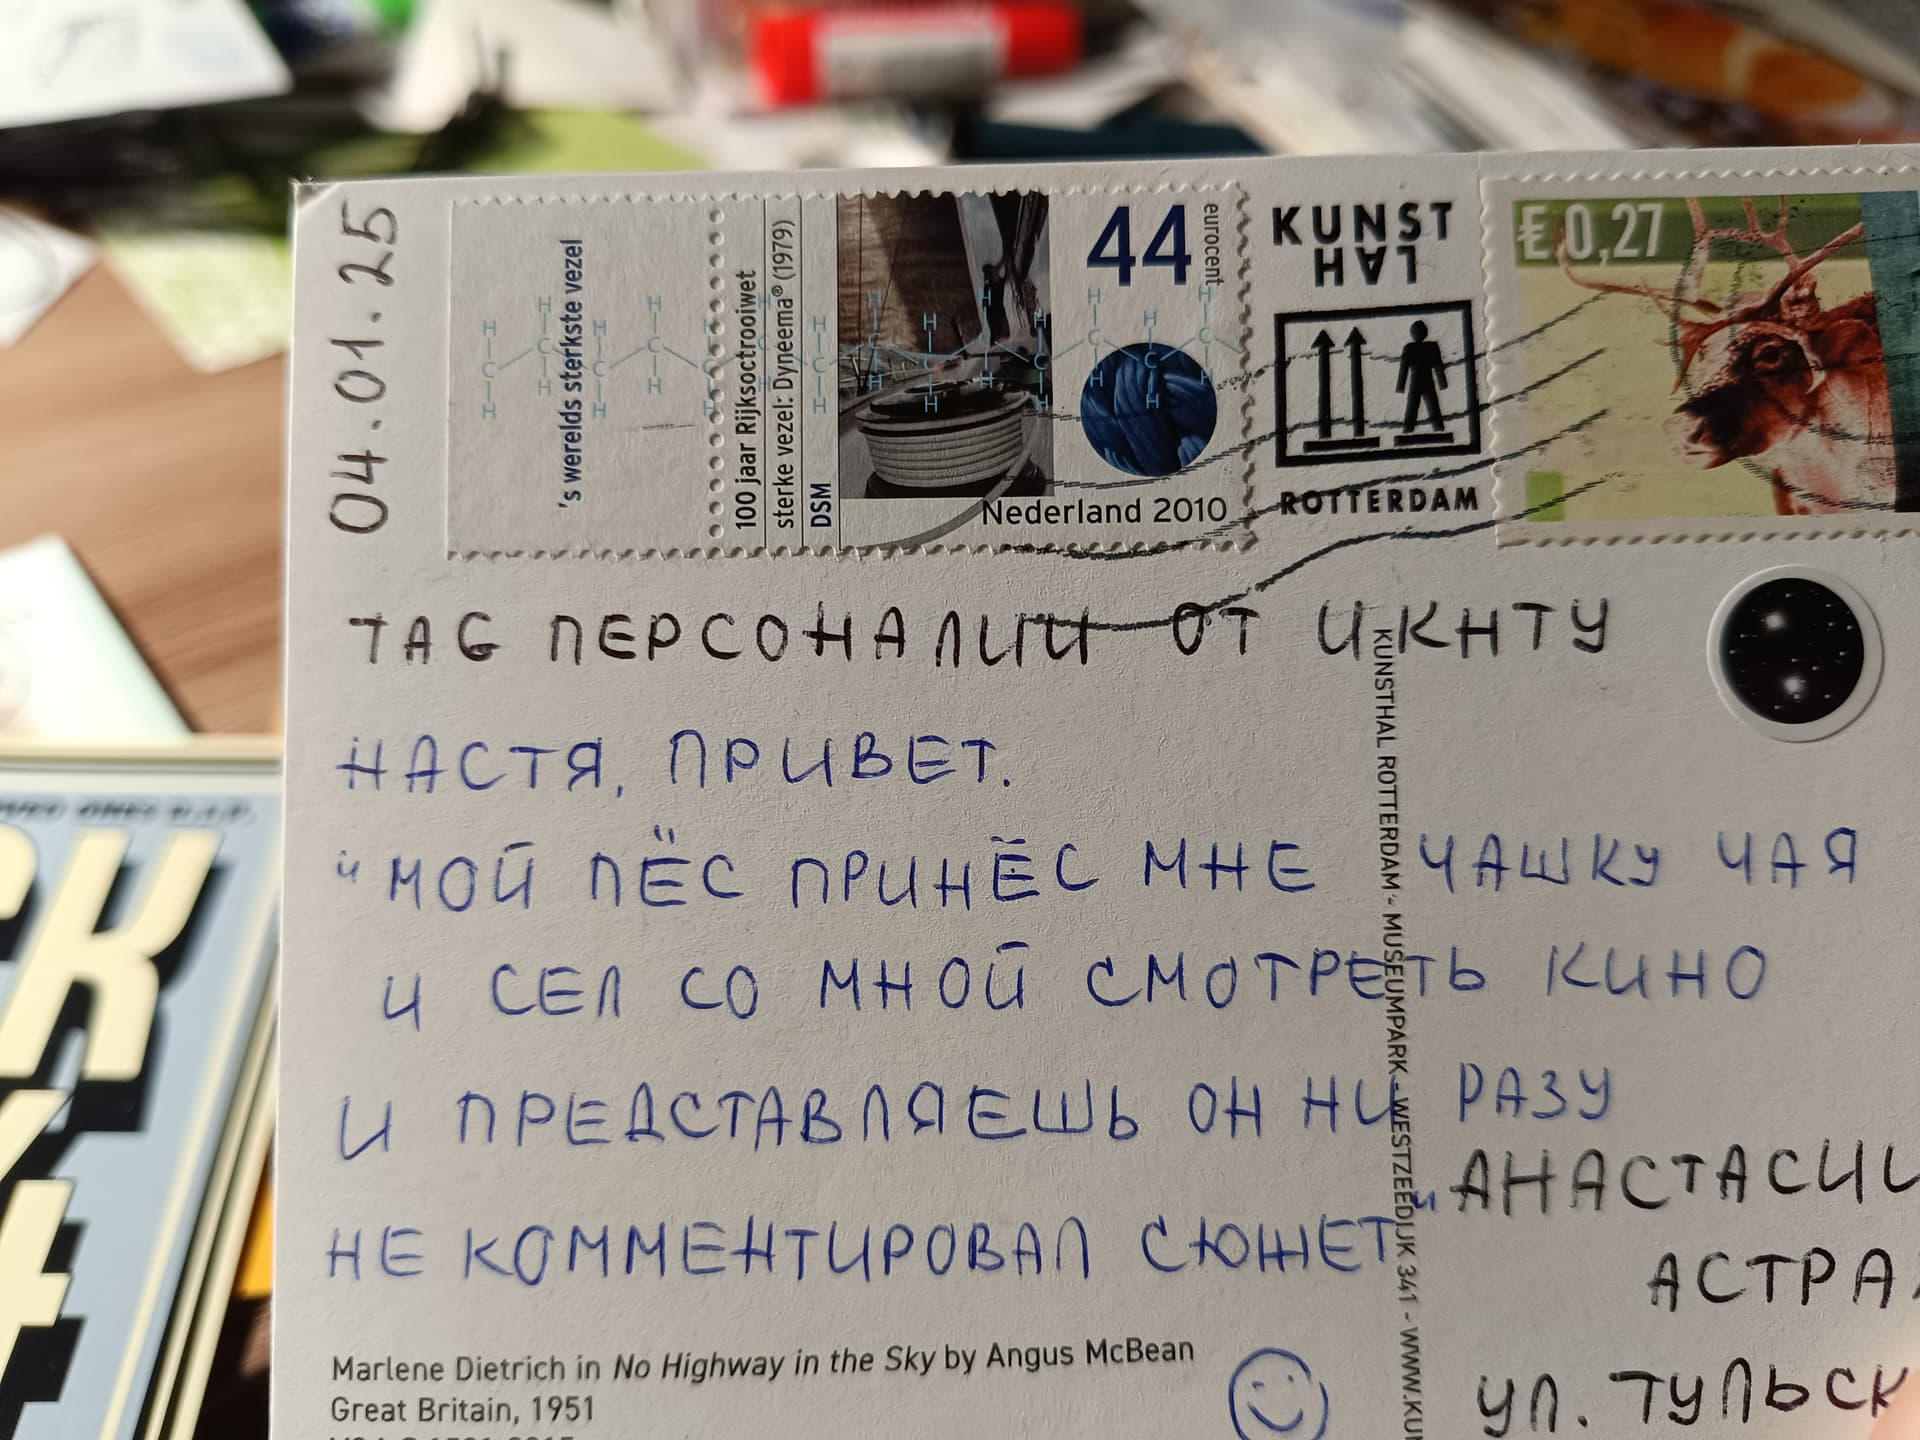 04.01.25
's werelds sterkste vezel
100 jaar Rijksoctrooiwet
sterke vezel: Dynema® (1979)
DSM
44 eurocent
Nederland 2010
KUNST
HAL
ROTTERDAM
€ 0,27
TAG ПЕРСОНАЛИИ ОТ ИКНТУ
НАСТЯ, ПРИВЕТ.
"МОЙ ПЁС ПРИНЁС МНЕ ЧАШКУ ЧАЯ
И СЕЛ СО МНОЙ СМОТРЕТЬ КИНО
И ПРЕДСТАВЛЯЕШЬ ОН НИ РАЗУ
НЕ КОММЕНТИРОВАЛ СЮЖЕТ"
KUNSTHAL ROTTERDAM - MUSEUMPARK - WESTZEEDIJK 341 - WWW.KU
АНАСТАСИИ
АСТРА
УЛ. ТУЛЬСК
Marlene Dietrich in No Highway in the Sky by Angus McBean
Great Britain, 1951